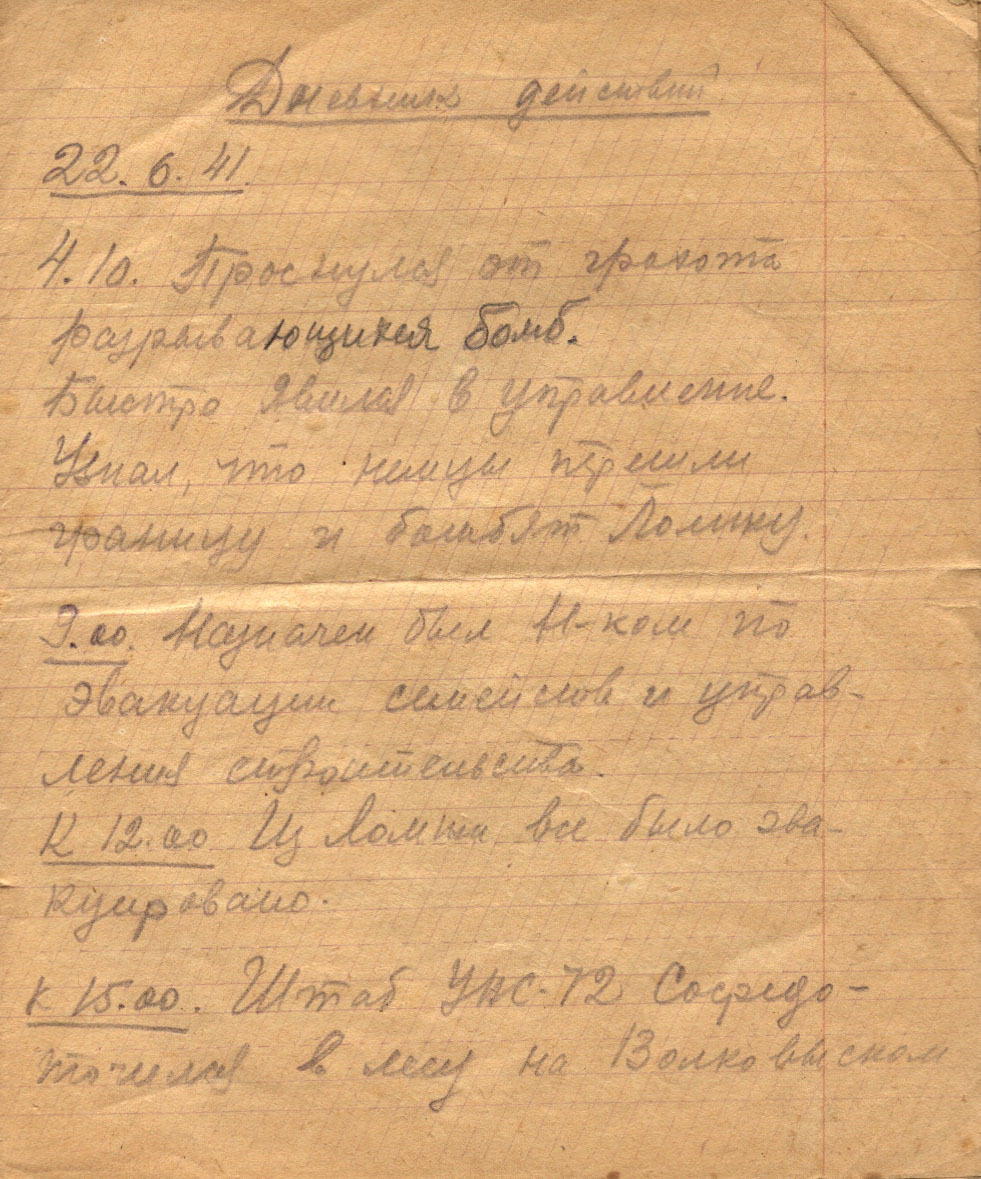 Дневник действий
22.6.41.
4.10. Проснулся от грохота
разрывающихся бомб.
Быстро явился в управление.
Узнал, что немцы перешли
границу и бомбят Ломжу.
9.00. Назначен был Н-ком по
эвакуации семейств и управ-
ления строительства.
К 12.00 Из Ломжи все было эва-
куировано.
К 15.00. Штаб УНС-72 Сосредо-
точился в лесу на Волковыском